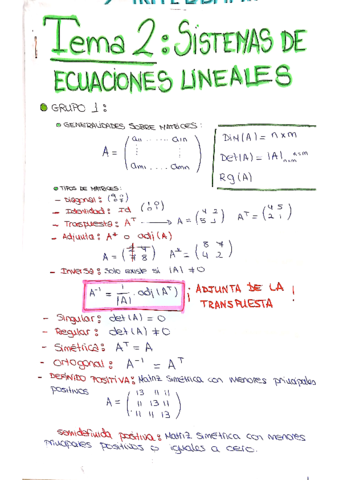 Tema 2: SISTEMAS DE
ECUACIONES LINEALES
GRUPO 1:
GENERALIDADES SOBRE MATRICES:
A = ( a11 ... a1n
am1 .... amn )
Dim(A) = n x m
Det(A) = |A| nxm
Rg(A)
TIPOS DE MATRICES:
- Diagonal:
- Identidad: Id
- Traspuesta: A^T → A = A^T =
- Adjunta: A* o adj(A)
A = A* =
- Inversa: solo existe si |A| ≠ 0
A^-1 = 1/|A| · adj(A^T)
¡ ADJUNTA DE LA
TRASPUESTA !
- Singular: det(A) = 0
- Regular: det(A) ≠ 0
- Simétrica: A^T = A
- Ortogonal: A^-1 = A^T
- DEFINIDO POSITIVA: Matriz simétrica con menores principales
positivos
A = ( 13 11 11
11 13 11
11 11 13 )
semidefinida positiva: Matriz simétrica con menores
principales positivos o iguales a cero.